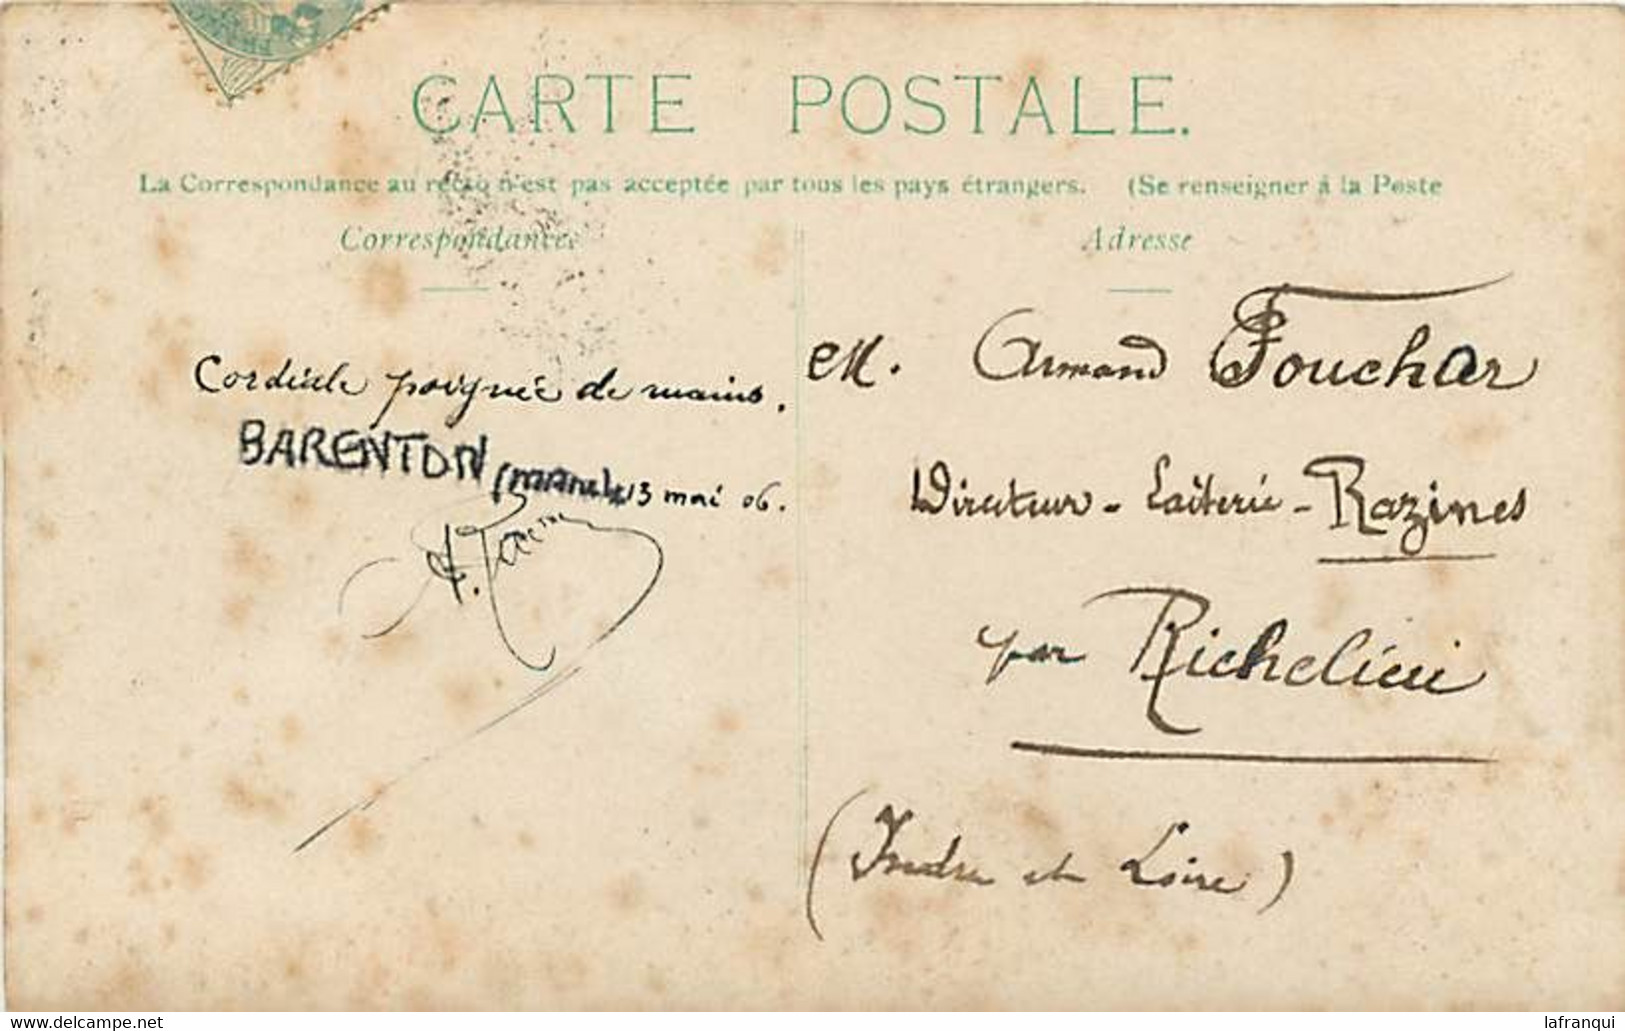 CARTE POSTALE.
La Correspondance au recto n'est pas acceptée par tous les pays étrangers. (Se renseigner à la Poste
Correspondance
Adresse
Cordiale poignée de mains.
BARENTON (manche 13 mai 06.
M. Armand Fouchar
Directeur - Laiterie - Razines
par Richelieu
(Indre et Loire)
lafranqui
www.delcampe.net